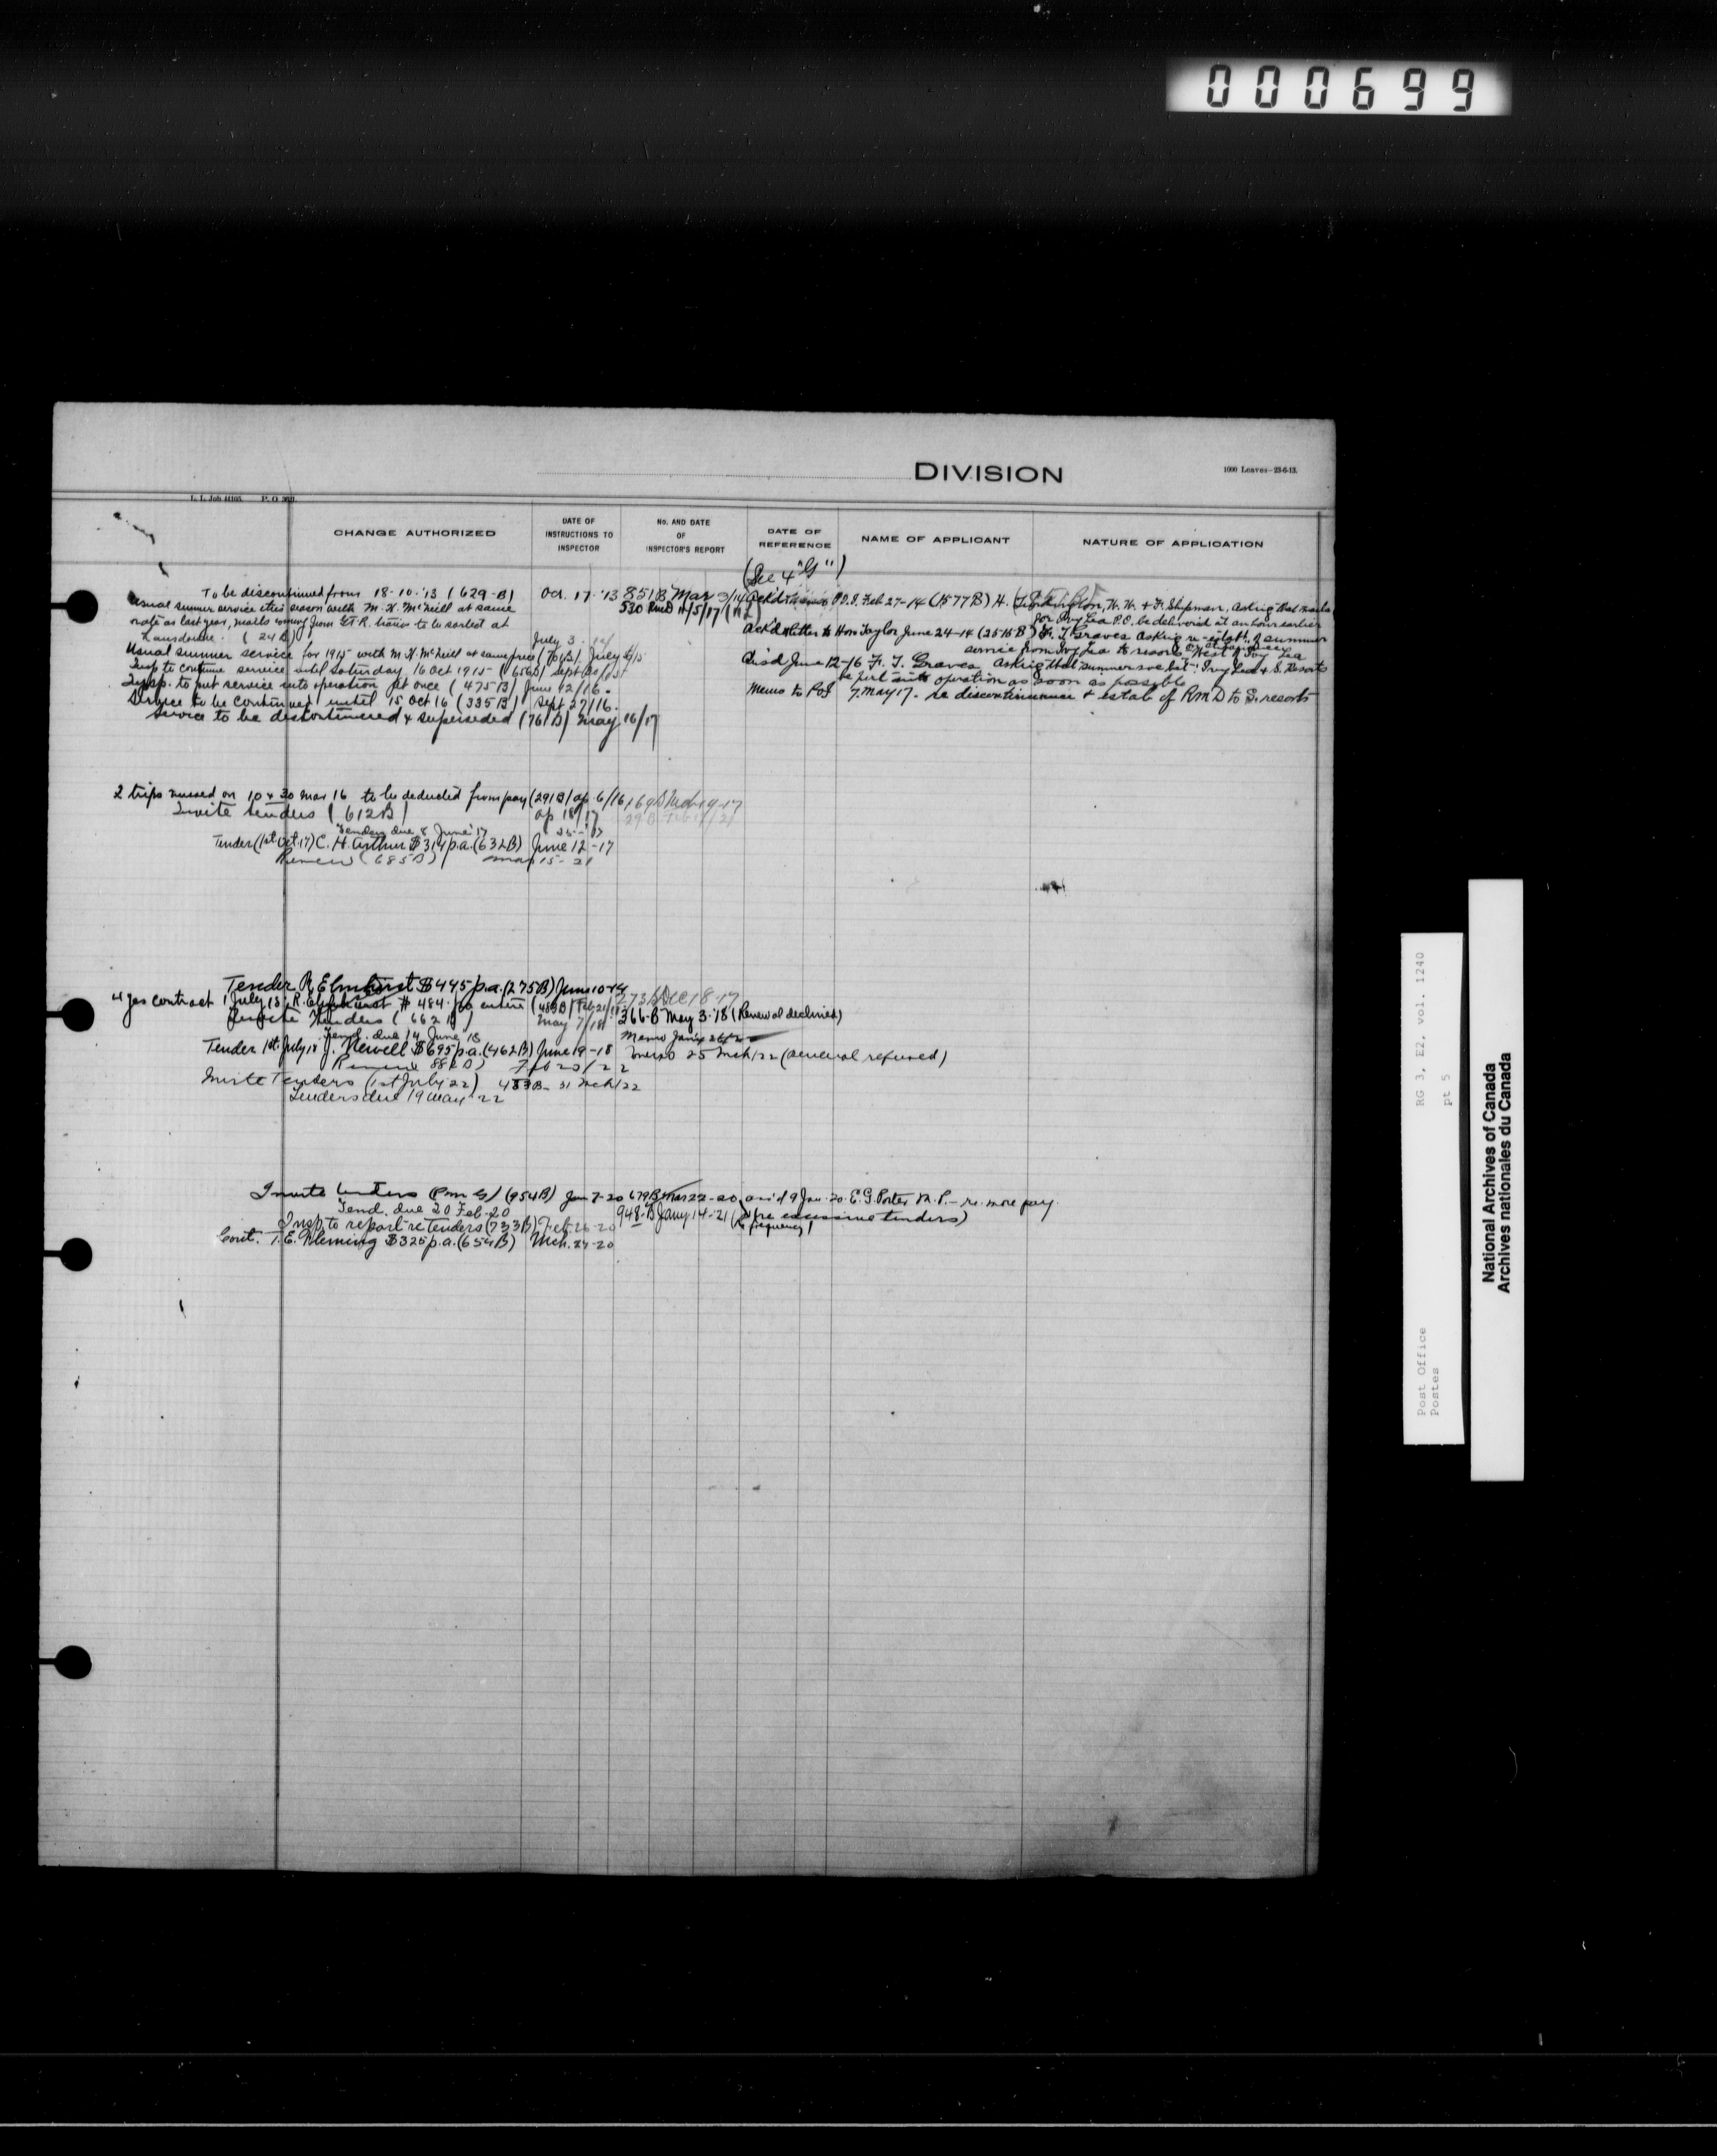 000699
DIVISION
1000 Leaves-23-6-13.
L. L. Job 44105. P. O.
CHANGE AUTHORIZED
DATE OF INSTRUCTIONS TO INSPECTOR
No. AND DATE OF INSPECTOR'S REPORT
DATE OF REFERENCE
NAME OF APPLICANT
NATURE OF APPLICATION
(See 4 "G")
To be discontinued from 18-10-'13 (629-B) Oct. 17-'13 851B Mar 9/14 Ack'd P.O.I. Feb 27-14 (1577B) H. W. H. & F. Shipman, asking that mails
530 11/5/17
for Ivy Lea P.O. be delivered at an hour earlier
Usual summer service this season with M. H. McNeill at same
rate as last year, mails coming from G.T.R. trains to be sorted at
Lansdowne. (24B) July 3
Ack'd letter to Hon Taylor June 24-14 (2515B) F. T. Graves asking re-estab. of summer
service from Ivy Lea to resorts West of Ivy Lea
Usual summer service for 1915 with M. H. McNeill at same price (70B) July 6/15
Insp to continue service until Saturday 16 Oct 1915 (656B) Sept 20/15
Ack'd June 12-16 F. T. Graves asking that summer sve bet. Ivy Lea & S. Resorts
be put into operation as soon as possible
Insp. to put service into operation at once (475B) June 12/16.
Service to be continued until 15 Oct 16 (335B) Sept 27/16.
Memo to PoI 7 May 17. re discontinuance & estab of RMD to S. resorts
Service to be discontinued & superseded (761B) May 16/17
2 trips missed on 10 & 30 Mar 16 to be deducted from pay (291B) ap 6/16 169B Mch 19-17
Invite tenders (612B) ap 18/17 29B Feb 17/21
Tenders due 8 June '17
Tender (1st Oct. 17) C. H. Arthur $314 p.a. (632B) June 12-17
Renew (685B) Mar 15-21
Tender R Elmhirst $445 p.a. (275B) June 10-14
4 yrs contract 1 July 13, R. Elmhirst $484. pa (483B) Feb 273B Dec 18-17
Invite Tenders (662B) May 7/18 366-B May 3-'18 (Renewal declined)
Tend. due 14 June '18
Tender 1st July 18 J. Newell $695 p.a. (462B) June 19-18 Memo 25 Mch/22 (renewal refused)
Renew 88 B) Feb 20/22
Invite Tenders (1st July 22) 483B- 31 Mch/22
Tenders due 19 May '22
Invite tenders (954B) Jan 7-20 679B Mar 22-20 9 Jan-20 E. G. Porter M.P.- re more pay.
Tend. due 20 Feb-20 948-B Jany 14-21 (re excessive tenders)
Insp. to report re Tenders (733B) Feb-26-20
re frequency
Cont. T. E. Fleming $325 p.a. (654B) Mch. 24-20
RG 3, E2, vol. 1240
pt 5
Post Office
Postes
National Archives of Canada
Archives nationales du Canada